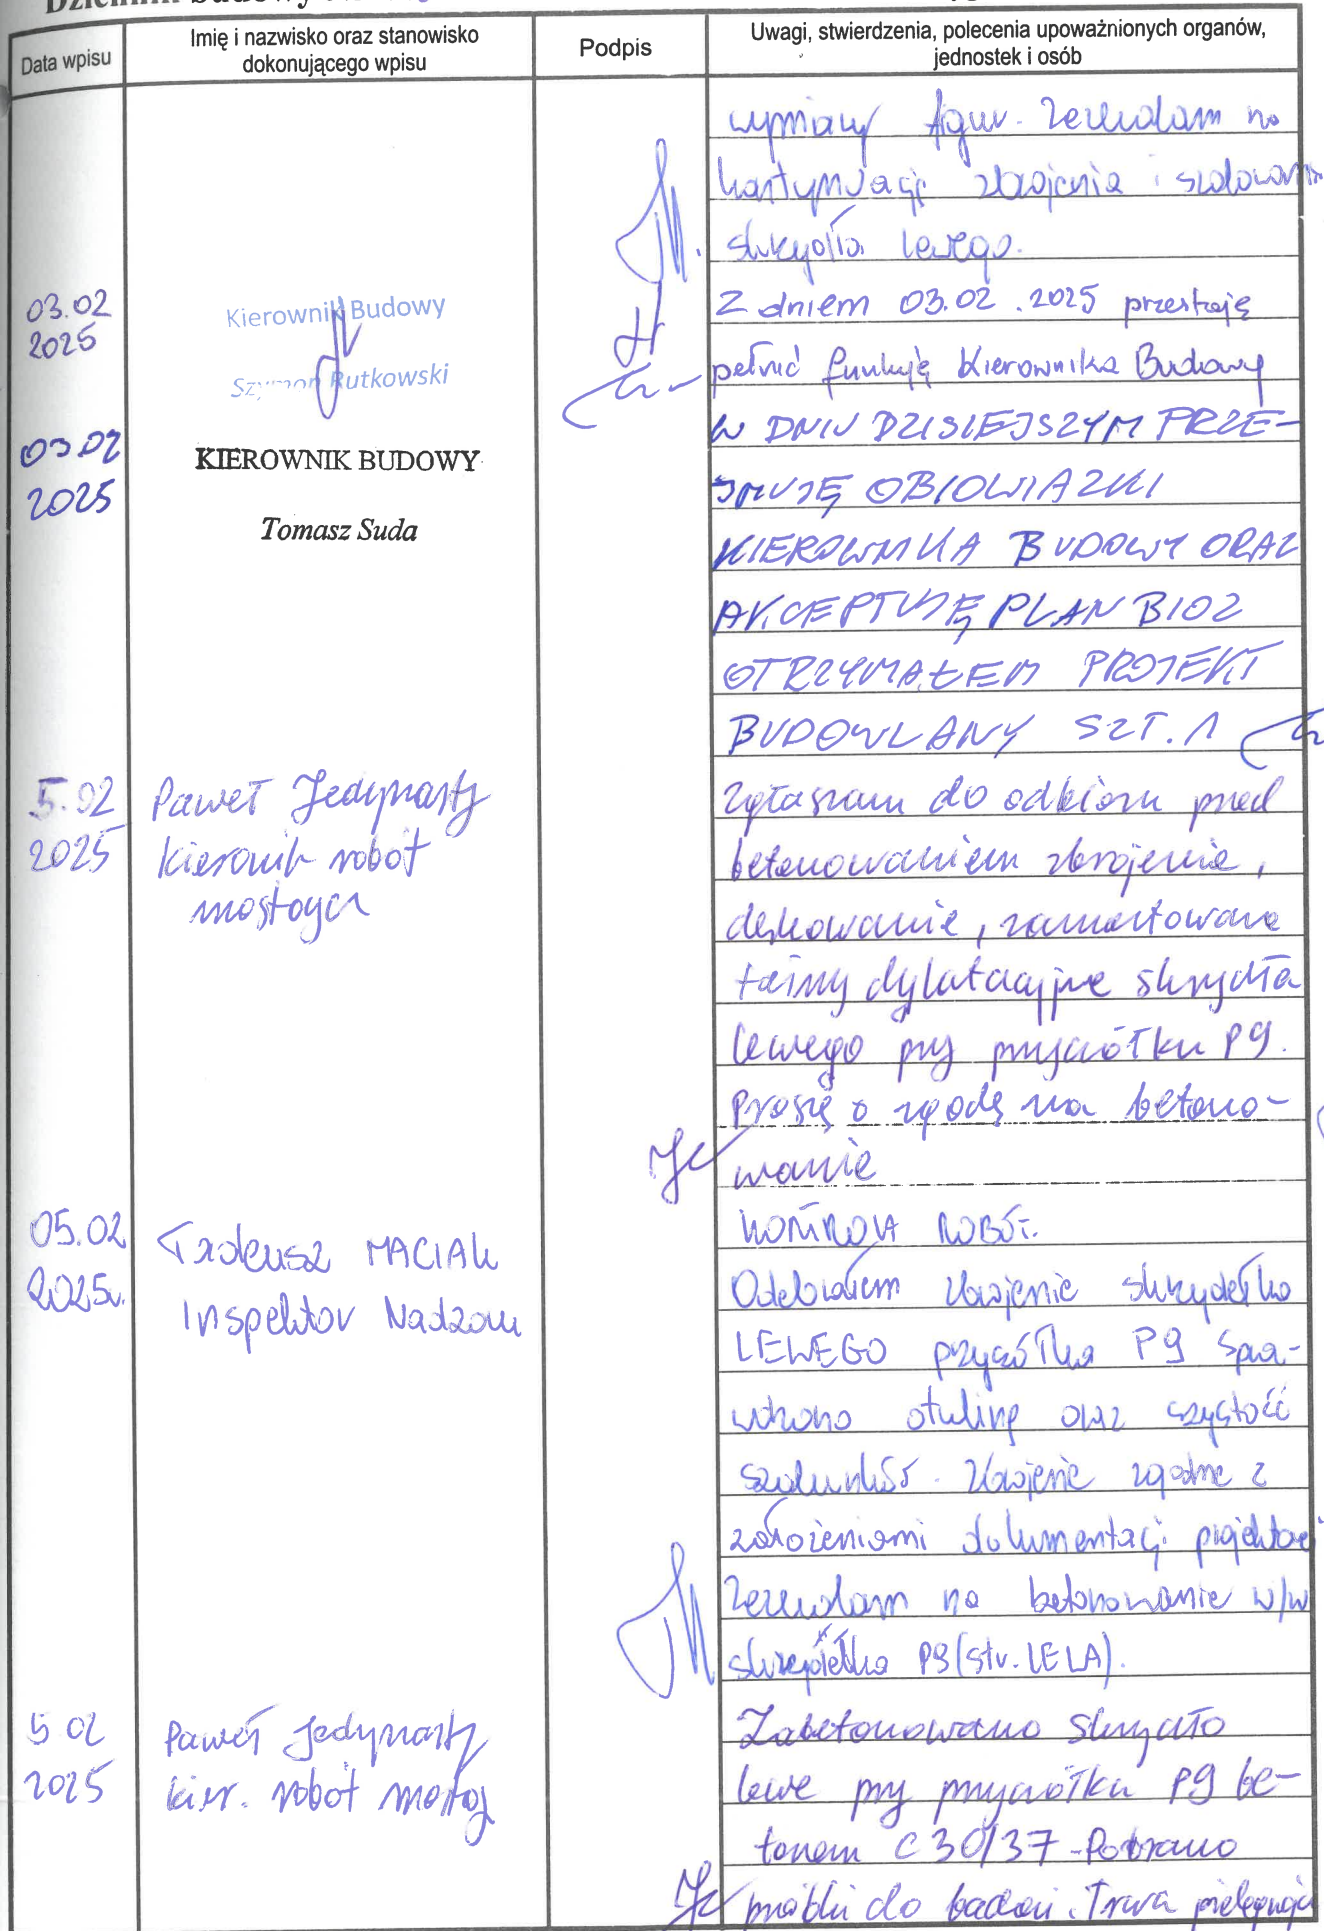 Dziennik budowy
Data wpisu
Imię i nazwisko oraz stanowisko
dokonującego wpisu
Podpis
Uwagi, stwierdzenia, polecenia upoważnionych organów,
jednostek i osób
wymiary Zezwalam na
kontynuację zbrojenia i szalowania
skrzydła lewego.
03.02
2025
Kierownik Budowy
Szymon Rutkowski
Z dniem 03.02.2025 przestaję
pełnić funkcję Kierownika Budowy
03 02
2025
KIEROWNIK BUDOWY
Tomasz Suda
W DNIU DZISIEJSZYM PRZE-
JMUJĘ OBIOWIAZKI
KIEROWNIKA BUDOWY ORAZ
AKCEPTUJĘ PLAN BIOZ
OTRZYMAŁEM PROJEKT
BUDOWLANY SZT. 1
5.02
2025
Paweł Jedynasty
kierownik robót
mostowych
Zgłaszam do odbioru przed
betonowaniem zbrojenie,
deskowanie, zamontowane
taśmy dylatacyjne skrzydła
lewego przy przyczółku P9.
Proszę o zgodę na betono-
wanie
05.02
2025r.
Tadeusz MACIAK
Inspektor Nadzoru
KONTROLA ROBÓT.
Odebrałem zbrojenie skrzydełka
LEWEGO przyczółka P9 Spra-
wdzono otulinę oraz czystość
szalunków. Zbrojenie zgodne z
założeniami dokumentacji projektowej
Zezwalam na betonowanie w/w
skrzydełka P9 (str. LEWA).
5 02
2025
Paweł Jedynasty
kier. robót mostow
Zabetonowano skrzydło
lewe przy przyczółku P9 be-
tonem C30/37 - Pobrano
próbki do badań. Trwa pielęgnacja